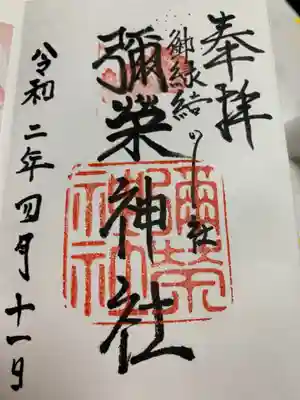 奉拝
御縁結の社
彌榮神社
彌榮神社
令和二年四月十一日